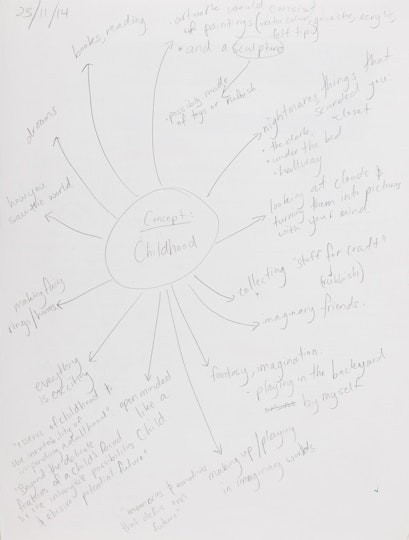 23/11/14
books, reading
artwork would consist
of paintings (watercolour, gouache, acrylic,
felt tips)
and a sculpture
possibly made
of toys or rubbish.
dreams
nightmares, things that
scarded you.
• the dark.
• closet
• under the bed
• hallway
how you
saw the world.
looking at clouds &
turning them into pictures
with your mind.
Concept:
Childhood
collecting "stuff for craft"
(rubbish)
making fairy
rings/homes
imaginary friends.
fantasy, imagination:
• playing in the backyard
by myself
everything
is exciting
open minded
like a
child
making up/playing
in imaginary worlds
"memories & emotive
that define
future"
of childhood &
the inevitability of
adulthood".
"Beyond the delicate
features of a child's face
lie the intangible possibilities
& elusive potential future"